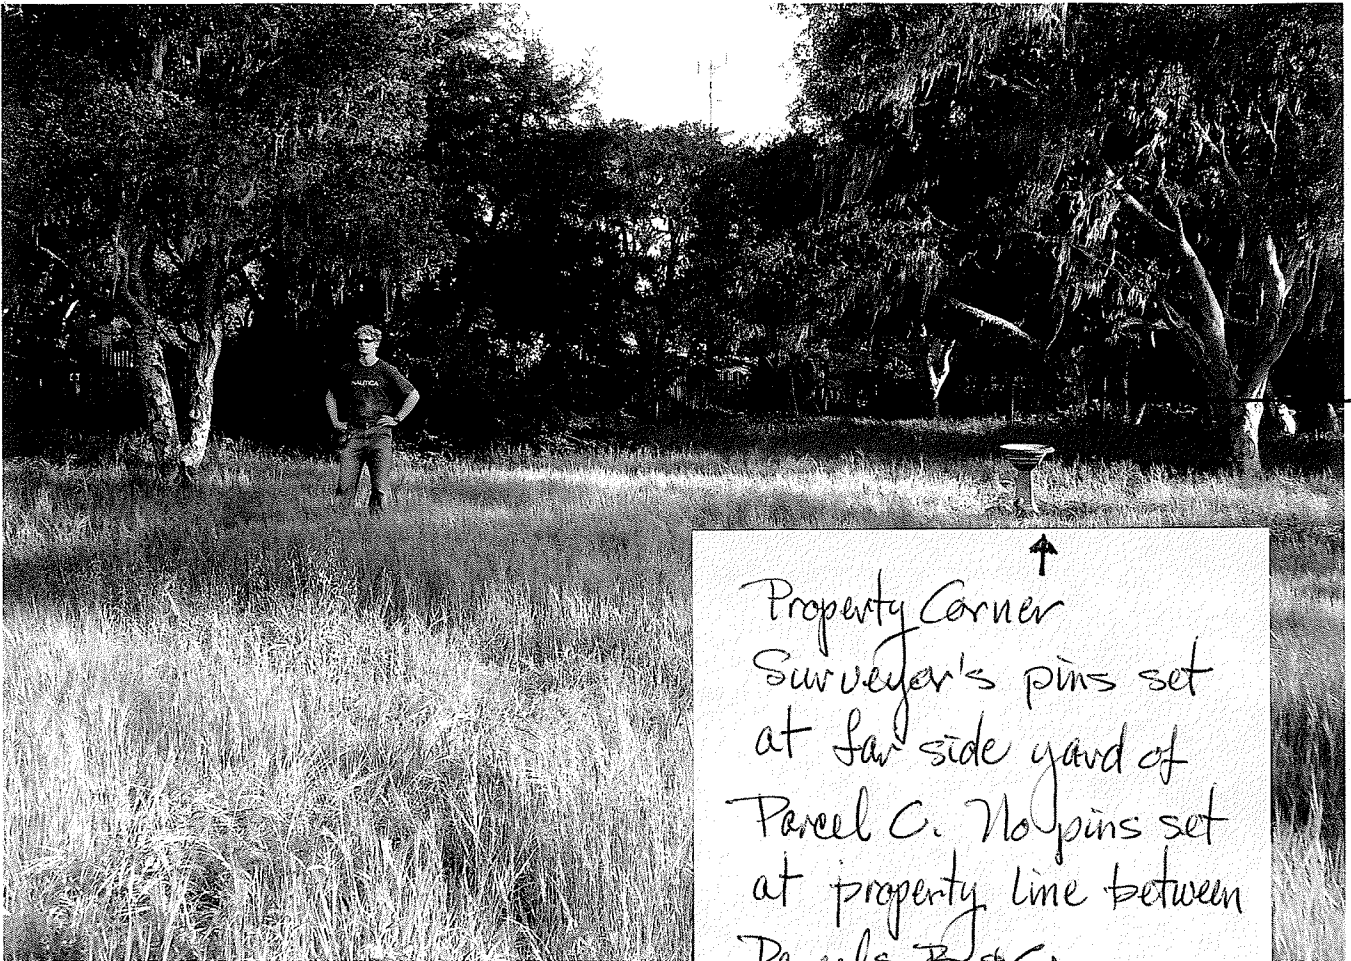 NAUTICA
Property Corner
Surveyor's pins set
at far side yard of
Parcel C. No pins set
at property line between
Parcels B & C.